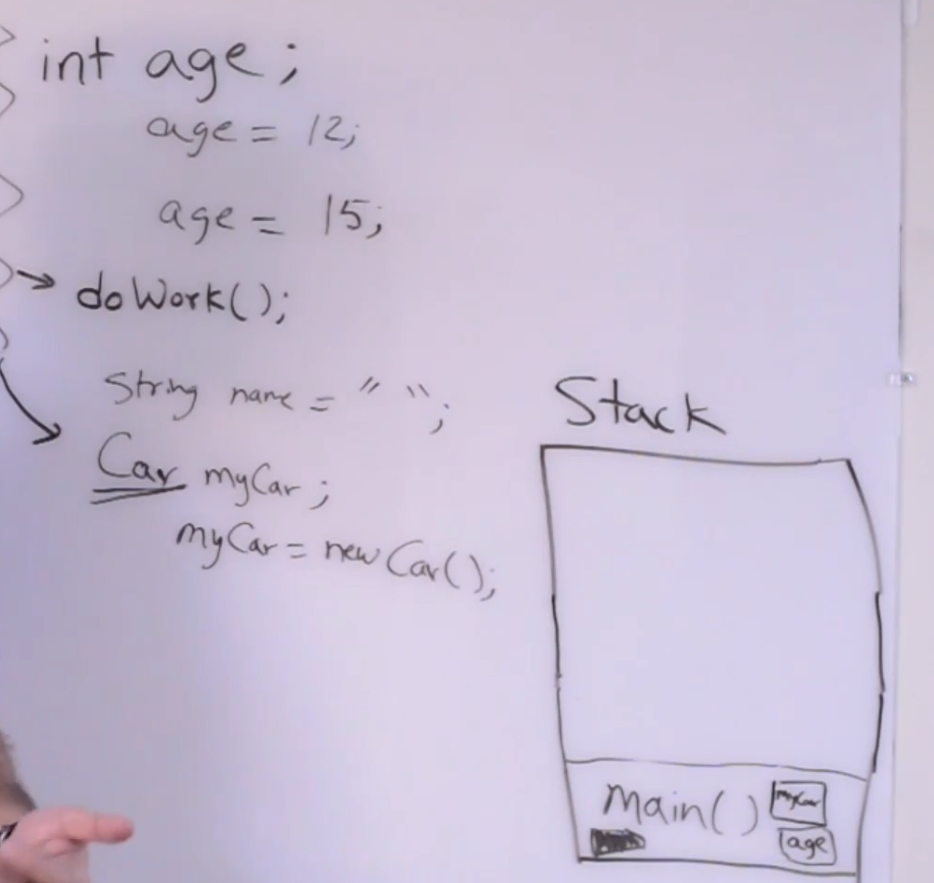 int age;
age = 12;
age = 15;
doWork();
String name = " ";
Car myCar;
myCar = new Car();
Stack
main()
myCar
age